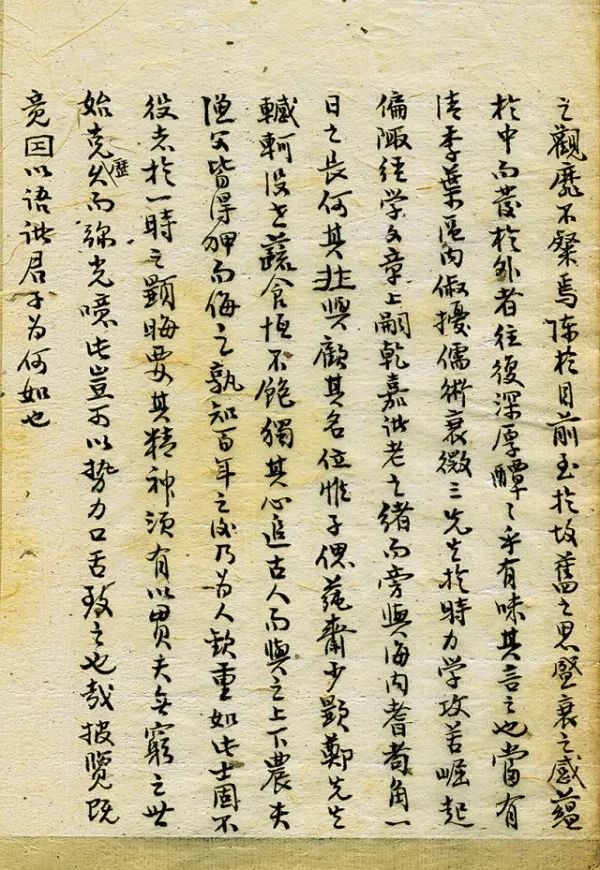 之觀靡不粲焉陈於目前至於故舊之思盛衰之感蕴
於中而發於外者往復深厚醰〻乎有味其言之也當有
清季葉區内俶擾儒術衰微三先生於時力学攻苦崛起
偏陬经学文章上嗣乾嘉诸老之绪而旁與海内耆耇角一
日之長何其壮與顧其名位惟子偲莼齋少顯鄭先生
轗軻没世蔬食恒不飽獨其心追古人而與之上下農夫
漁父皆得狎而侮之孰知百年之後乃为人欽重如此士固不
役志於一時之顯晦要其精神須有以貫夫無窮之世
始克歷久而弥光噫此豈可以势力口舌致之也哉披覽既
竟因以语诸君子为何如也